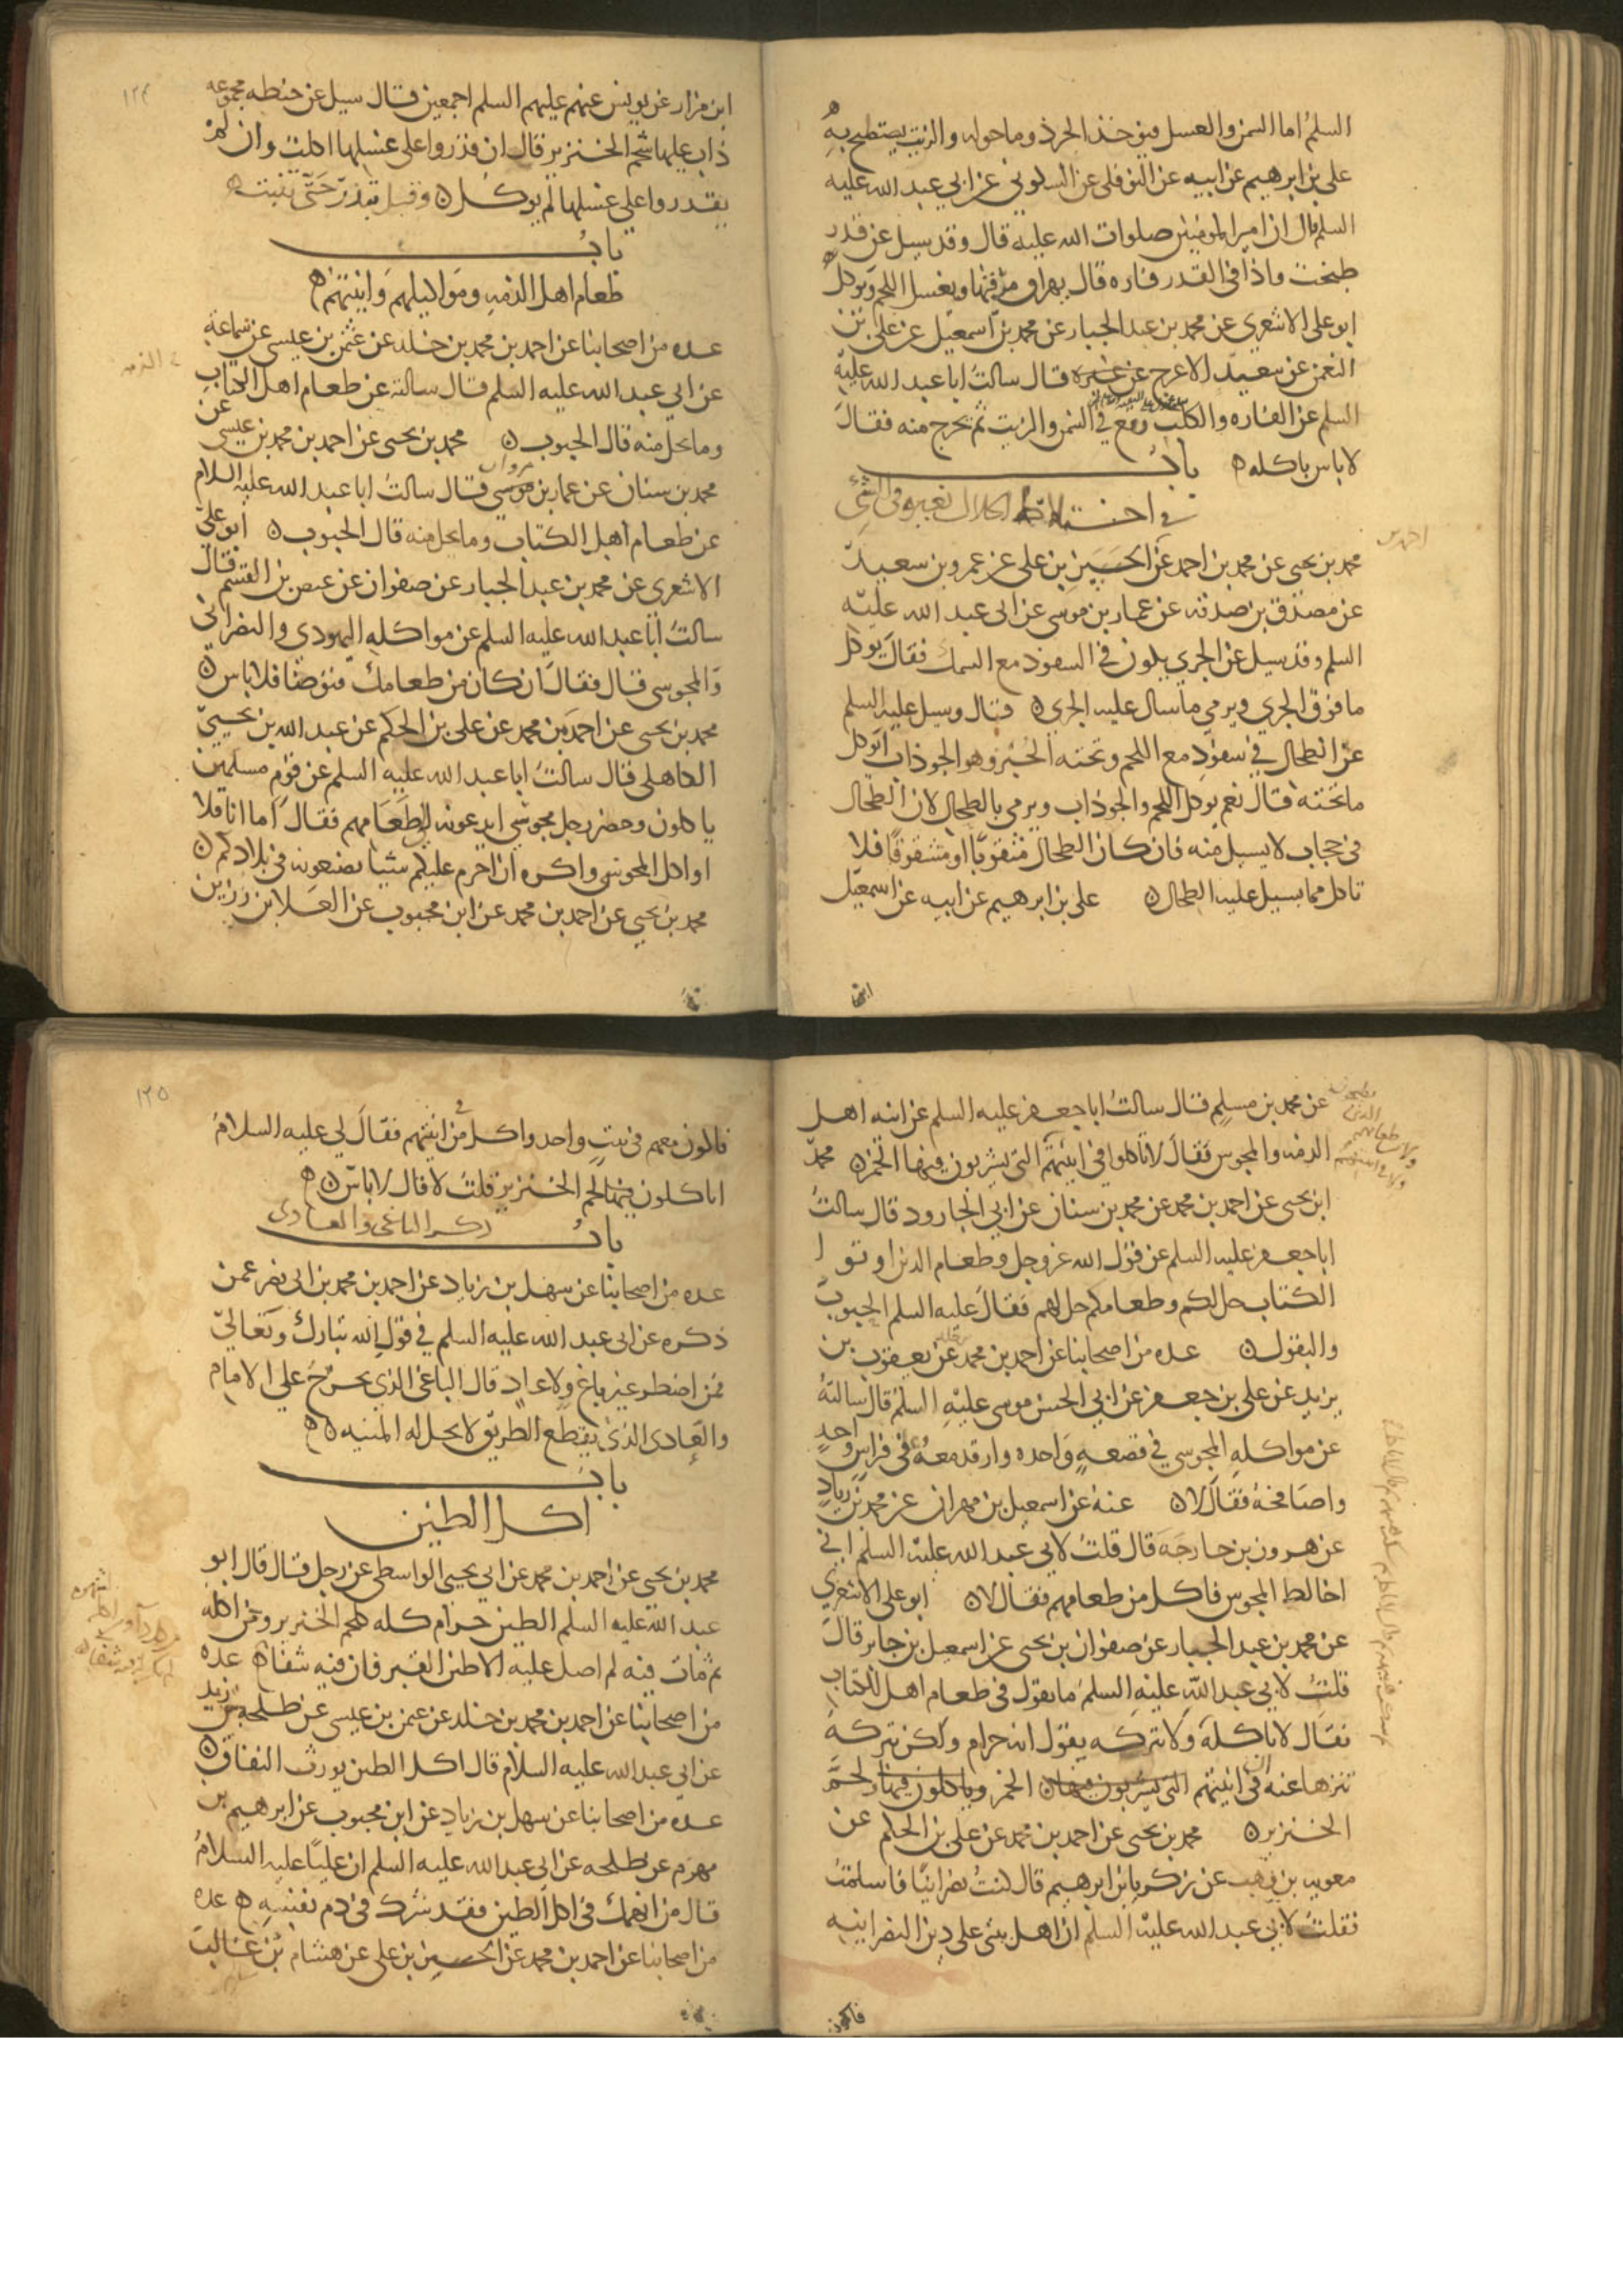 السلم اما السمن والعسل فيوخذ الجرذ وما حوله والزيت يستصبح به
علي بن ابرهيم عن ابيه عن النوفلي عن السكوني عن ابي عبد الله عليه
السلم قال ان امير المومنين صلوات الله عليه قال وقد سيل عن قدر
طبخت واذا في القدر فاره قال يهراق مرقتها ويغسل اللحم ويوكل
ابو علي الاشعري عن محمد بن عبد الجبار عن محمد بن اسمعيل عن علي بن
النعمن عن سعيد الاعرج عن غيره قال سالت ابا عبد الله عليه
السلم عن الفاره والكلب وقع في السمن والزيت ثم يخرج منه فقال
لا باس باكله باب
في اختلاط الحلال بغيره في الشي
محمد بن يحيى عن محمد بن احمد عن الحسين بن علي عن عمرو بن سعيد
عن مصدق بن صدقه عن عمار بن موسى عن ابي عبد الله عليه
السلم وقد سيل عن الجري يكون في السفود مع السمك فقال يوكل
ما فوق الجري ويرمي ما سال عليه الجري قال وسيل عليه السلم
عن الطحال في سفود مع اللحم وتحته الخبز وهو الجوذاب ايوكل
ما تحته قال نعم يوكل اللحم والجوذاب ويرمي بالطحال لان الطحال
في حجاب لا يسيل منه فان كان الطحال مثقوبا او مشقوقا فلا
تاكل مما يسيل عليه الطحال علي بن ابرهيم عن ابيه عن اسمعيل
ابن
١٢٤
ابن مرار عن يونس عنهم عليهم السلم اجمعين قال سيل عن حنطه مجموعه
ذاب عليها شحم الخنزير قال ان قدروا على غسلها اكلت وان لم
يقدروا على غسلها لم يوكل وقيل تبذر حتى تنبت
باب
طعام اهل الذمه ومواكيلهم وانيتهم
عده من اصحابنا عن احمد بن محمد بن خلد عن عثمن بن عيسى عن سماعة
عن ابي عبد الله عليه السلم قال سالته عن طعام اهل الكتاب
وما يحل منه قال الحبوب محمد بن يحيى عن احمد بن محمد بن عيسى عن
محمد بن سنان عن عمار بن موسى مروان قال سالت ابا عبد الله عليه السلام
عن طعام اهل الكتاب وما يحل منه قال الحبوب ابو علي
الاشعري عن محمد بن عبد الجبار عن صفوان عن عيص بن القسم قال
سالت ابا عبد الله عليه السلم عن مواكله اليهودي والنصراني
والمجوسي قال فقال ان كان من طعامك فتوضا فلا باس
محمد بن يحيى عن احمد بن محمد عن علي بن الحكم عن عبد الله بن يحيى
الكاهلي قال سالت ابا عبد الله عليه السلم عن قوم مسلمين
ياكلون وحضر رجل مجوسي ايدعونه الى طعامهم فقال اما انا فلا
اواكل المجوسي واكره ان احرم عليكم شيئا تصنعونه في بلادكم
محمد بن يحيى عن احمد بن محمد عن ابن محبوب عن العلا بن رزين
عن محمد بن مسلم قال سالت ابا جعفر عليه السلم عن انيه اهل
الذمه والمجوس فقال لا تاكلوا في انيتهم التي يشربون فيها الخمر محمد
ابن يحيى عن احمد بن محمد عن محمد بن سنان عن ابي الجارود قال سالت
ابا جعفر عليه السلم عن قول الله عز وجل وطعام الذين اوتوا
الكتاب حل لكم وطعامكم حل لهم فقال عليه السلم الحبوب
والبقول عده من اصحابنا عن احمد بن محمد عن يعقوب بن
يزيد عن علي بن جعفر عن ابي الحسن موسى عليه السلم قال سالته
عن مواكله المجوسي في قصعه واحده وارقد معه في فراش واحد
واصافحه فقال لا عنه عن اسمعيل بن مهران عن محمد بن زياد
عن هرون بن خارجه قال قلت لابي عبد الله عليه السلم اني
اخالط المجوس فاكل من طعامهم فقال لا ابو علي الاشعري
عن محمد بن عبد الجبار عن صفوان بن يحيى عن اسمعيل بن جابر قال
قلت لابي عبد الله عليه السلم ما تقول في طعام اهل الكتاب
فقال لا تاكله ولا تتركه يقول انه حرام ولكن تتركه
تنزها عنه ان في انيتهم التي يشربون فيها الخمر وياكلون فيها لحم
الخنزير محمد بن يحيى عن احمد بن محمد عن علي بن الحكم عن
معويه بن وهب عن زكريا بن ابرهيم قال كنت نصرانيا فاسلمت
فقلت لابي عبد الله عليه السلم ان اهل بيتي على دين النصرانيه
فاكون
١٢٥
فاكون معهم في بيت واحد واكل من انيتهم فقال لي عليه السلام
اياكلون فيها لحم الخنزير قلت لا قال لا باس
باب ذكر الباغي والعادي
عده من اصحابنا عن سهل بن زياد عن احمد بن محمد بن ابي نصر عمن
ذكره عن ابي عبد الله عليه السلم في قول الله تبارك وتعالى
فمن اضطر غير باغ ولا عاد قال الباغي الذي يخرج على الامام
والعادي الذي يقطع الطريق لا يحل له الميته
باب
اكل الطين
محمد بن يحيى عن احمد بن محمد عن ابي يحيى الواسطي عن رجل قال قال ابو
عبد الله عليه السلم الطين حرام كله كلحم الخنزير ومن اكله
ثم مات فيه لم اصل عليه الا طين القبر فان فيه شفا عده
من اصحابنا عن احمد بن محمد بن خلد عن عثمن بن عيسى عن طلحه بن زيد
عن ابي عبد الله عليه السلام قال اكل الطين يورث النفاق
عده من اصحابنا عن سهل بن زياد عن ابن محبوب عن ابرهيم بن
مهزم عن طلحه عن ابي عبد الله عليه السلم ان عليا عليه السلام
قال من انهمك في اكل الطين فقد شرك في دم نفسه عده
من اصحابنا عن احمد بن محمد عن الحسين بن علي عن هشام بن